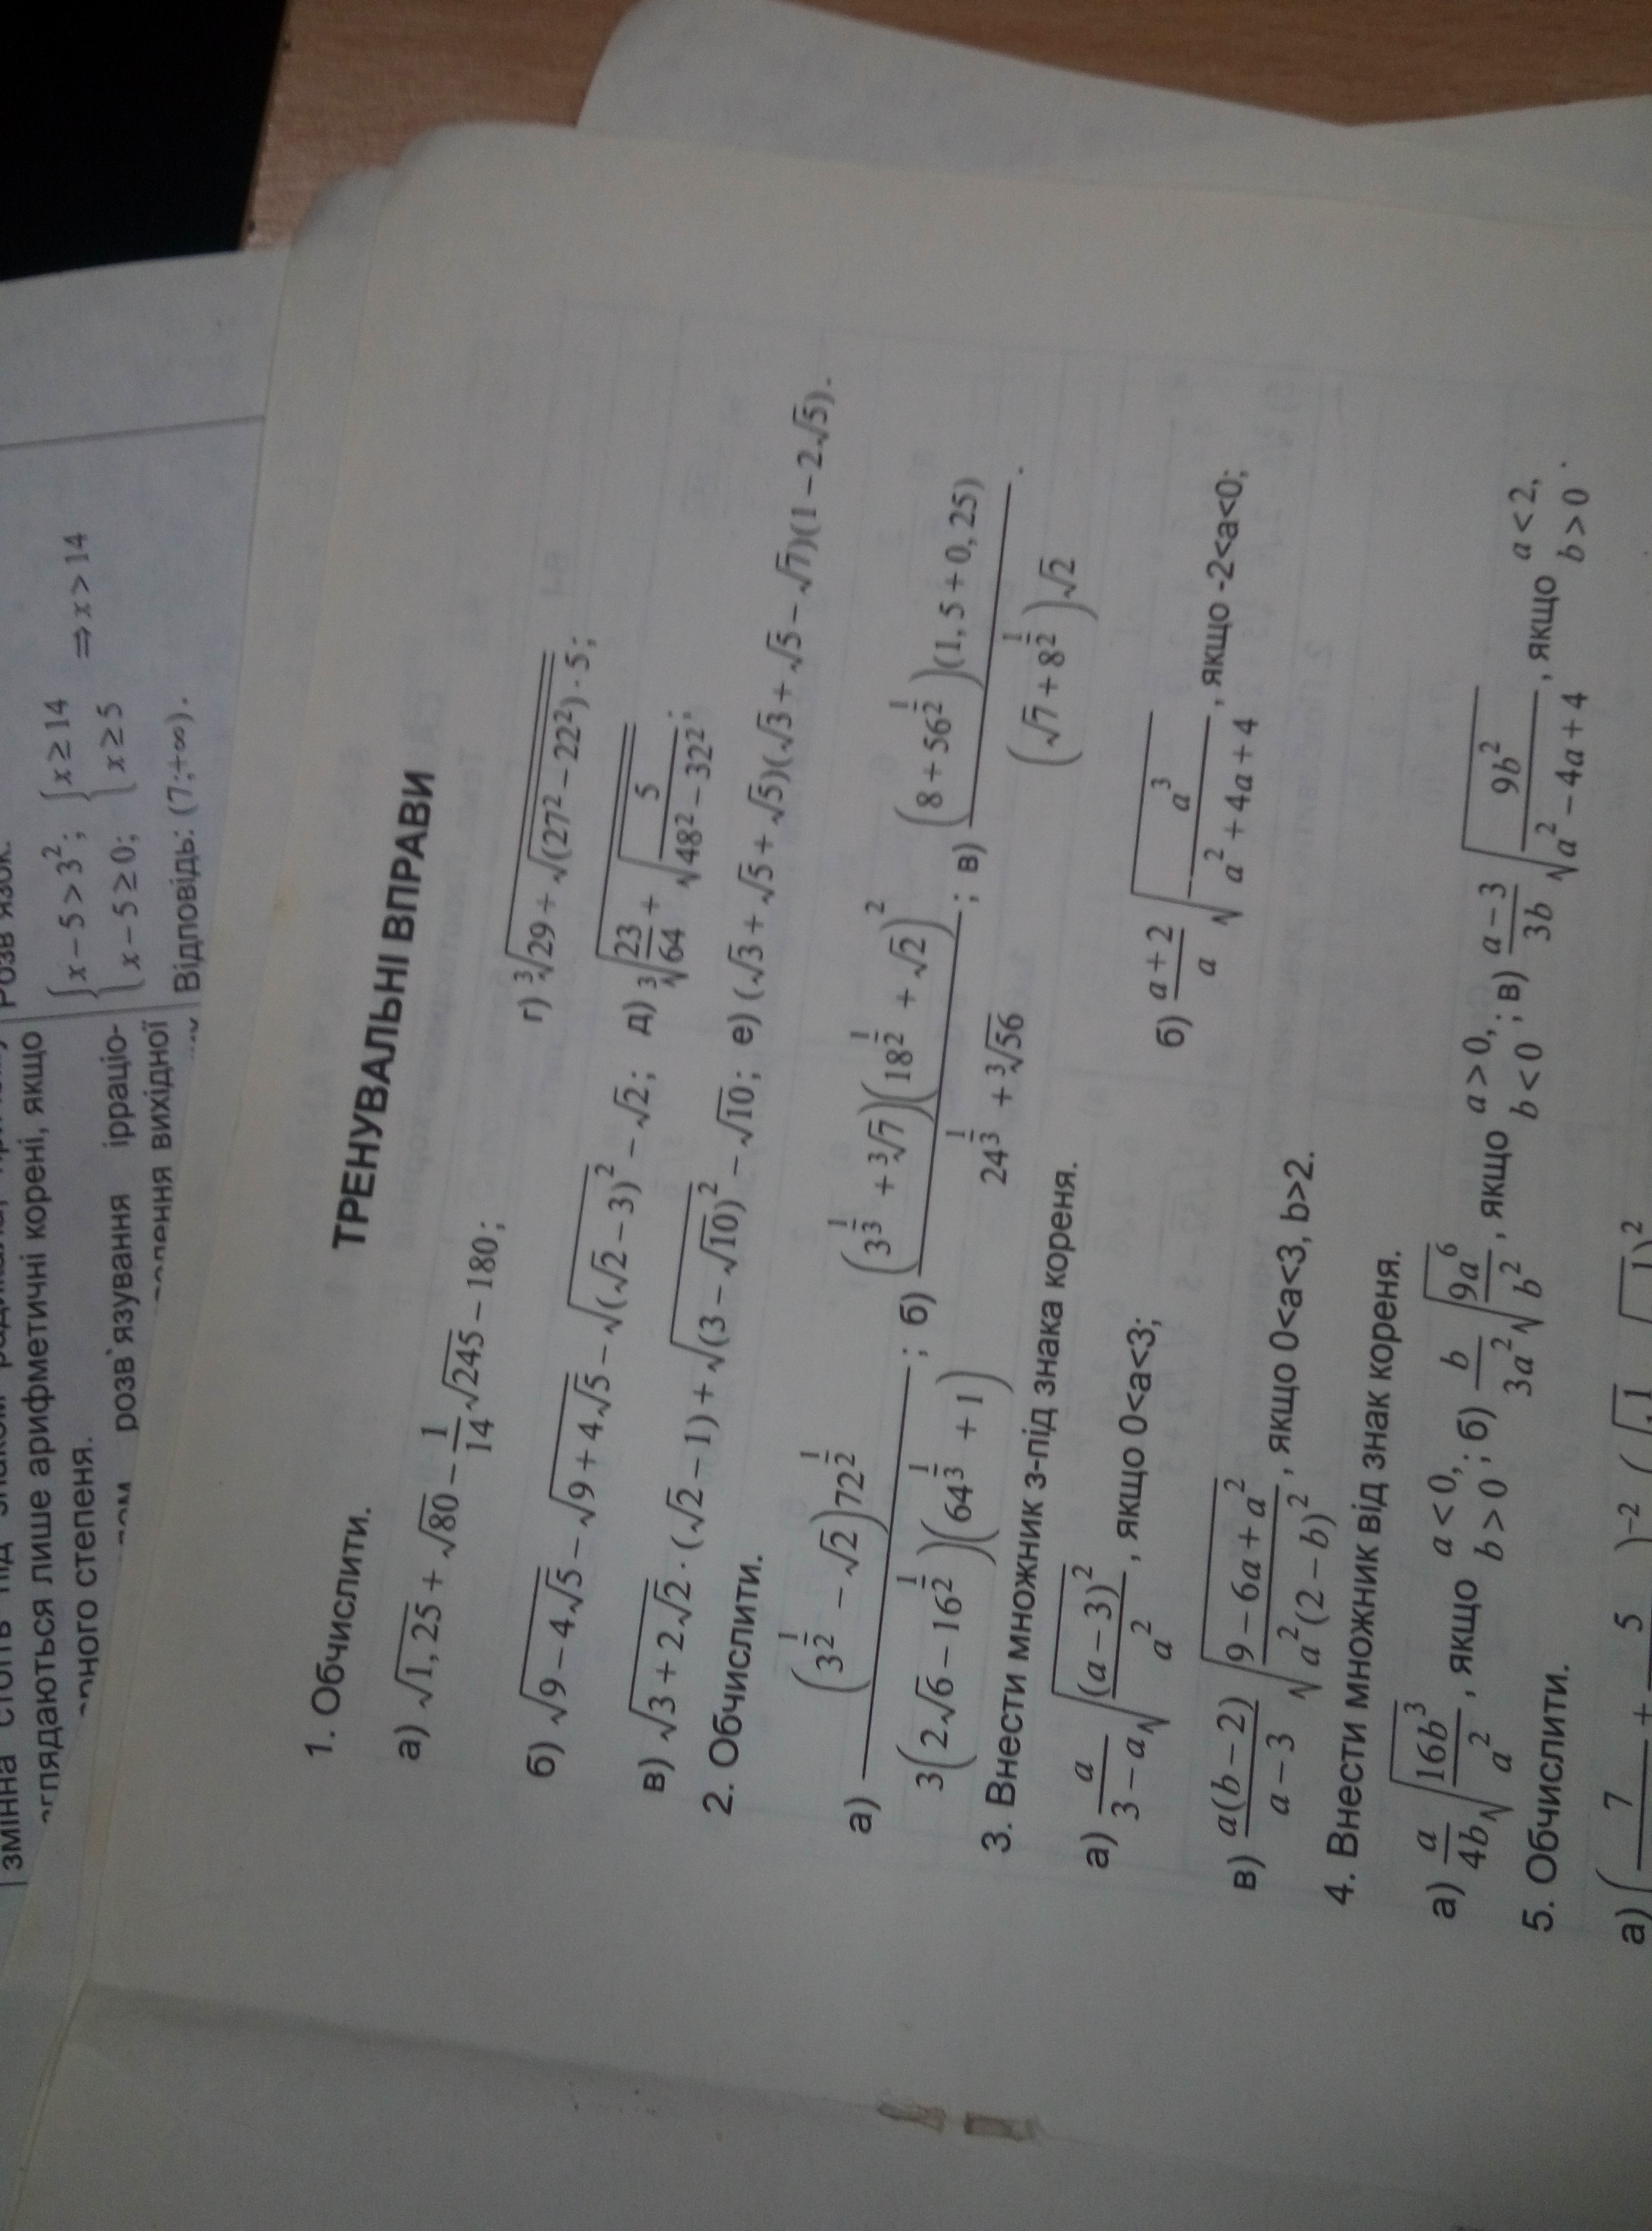 змінна стоїть під знаком
розглядаються лише арифметичні корені, якщо
степеня.
розв`язування ірраціо-
вихідної
{x − 5 > 3²; {x ≥ 14 ⇒ x > 14
{x − 5 ≥ 0; {x ≥ 5
Відповідь: (7;+∞).
ТРЕНУВАЛЬНІ ВПРАВИ
1. Обчислити.
а) √(1,25) + √80 − 1/14 √245 − 180;
г) ∛(29 + √((27² − 22²)·5));
б) √(9 − 4√5) − √(9 + 4√5) − √((√2 − 3)²) − √2; д) ∛(23/64 + √(5/(48² − 32²)));
в) √(3 + 2√2) · (√2 − 1) + √((3 − √10)²) − √10; е) (√3 + √5 + √5)(√3 + √5 − √7)(1 − 2√5).
2. Обчислити.
а) (3^(1/2) − √2)72^(1/2) / (3(2√6 − 16^(1/2))(64^(1/3) + 1)); б) (3^(1/3) + ∛7)(18^(1/2) + √2)² / (24^(1/3) + ∛56); в) (8 + 56^(1/2))(1,5 + 0,25) / ((√7 + 8^(1/2))√2).
3. Внести множник з-під знака кореня.
а) a/(3 − a) √((a − 3)²/a²), якщо 0<a<3;
б) (a + 2)/a √(a³/(a² + 4a + 4)), якщо -2<a<0;
в) a(b − 2)/(a − 3) √((9 − 6a + a²)/(a²(2 − b)²)), якщо 0<a<3, b>2.
4. Внести множник від знак кореня.
а) a/4b √(16b³/a²), якщо a < 0, b > 0; б) b/3a² √(9a⁶/b²), якщо a > 0, b < 0; в) (a − 3)/3b √(9b²/(a² − 4a + 4)), якщо a < 2, b > 0.
5. Обчислити.
а) ( 7 + 5 )⁻²